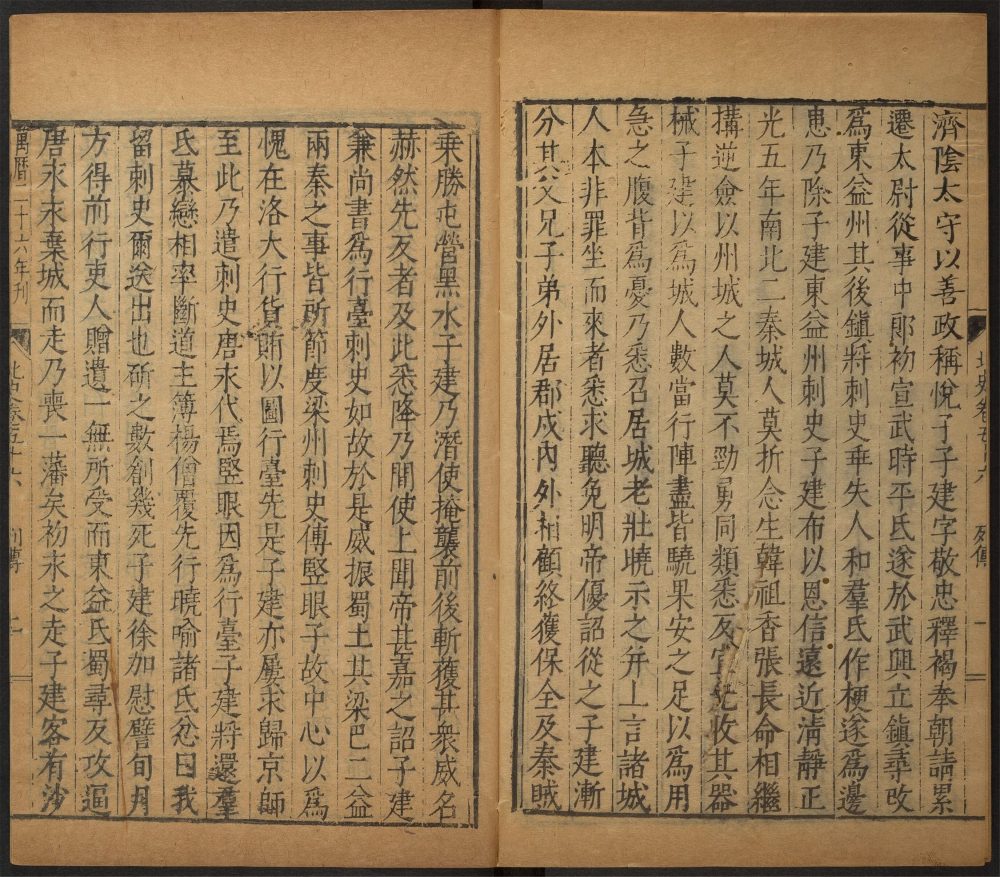 北史卷五十六 列傳 一
濟陰太守以善政稱悅子子建字敬忠釋褐奉朝請累
遷太尉從事中郎初宣武時平氐遂於武興立鎮尋改
為東益州其後鎮將刺史乖失人和羣氐作梗遂為邊
患乃除子建東益州刺史子建布以恩信遠近清靜正
光五年南北二秦城人莫折念生韓祖香張長命相繼
搆逆僉以州城之人莫不勁勇同類悉反宜先收其器
械子建以為城人數當行陣盡皆驍果安之足以為用
急之腹背為憂乃悉召居城老壯曉示之并上言諸城
人本非罪坐而來者悉求聽免明帝優詔從之子建漸
分其父兄子弟外居郡戍內外相顧終獲保全及秦賊
乗勝屯營黑水子建乃潛使掩襲前後斬獲甚衆威名
赫然先反者及此悉降乃間使上聞帝甚嘉之詔子建
兼尚書為行臺刺史如故於是威振蜀土其梁巴二益
兩秦之事皆所節度梁州刺史傅竪眼子敬中心以為
愧在洛大行貨賄以圖行臺先是子建亦屢求歸京師
至此乃遣刺史唐永代焉竪眼因為行臺子建將還羣
氐慕戀相率斷道主簿楊僧覆先行曉喻諸氐忿曰我
留刺史爾送出也斫之數創幾死子建徐加慰譬旬月
方得前行吏人贈遺一無所受而東益氐蜀尋反攻逼
唐永永棄城而走乃喪一藩矣初永之走子建客有沙
萬曆二十六年刊 北史卷五十六 列傳 二